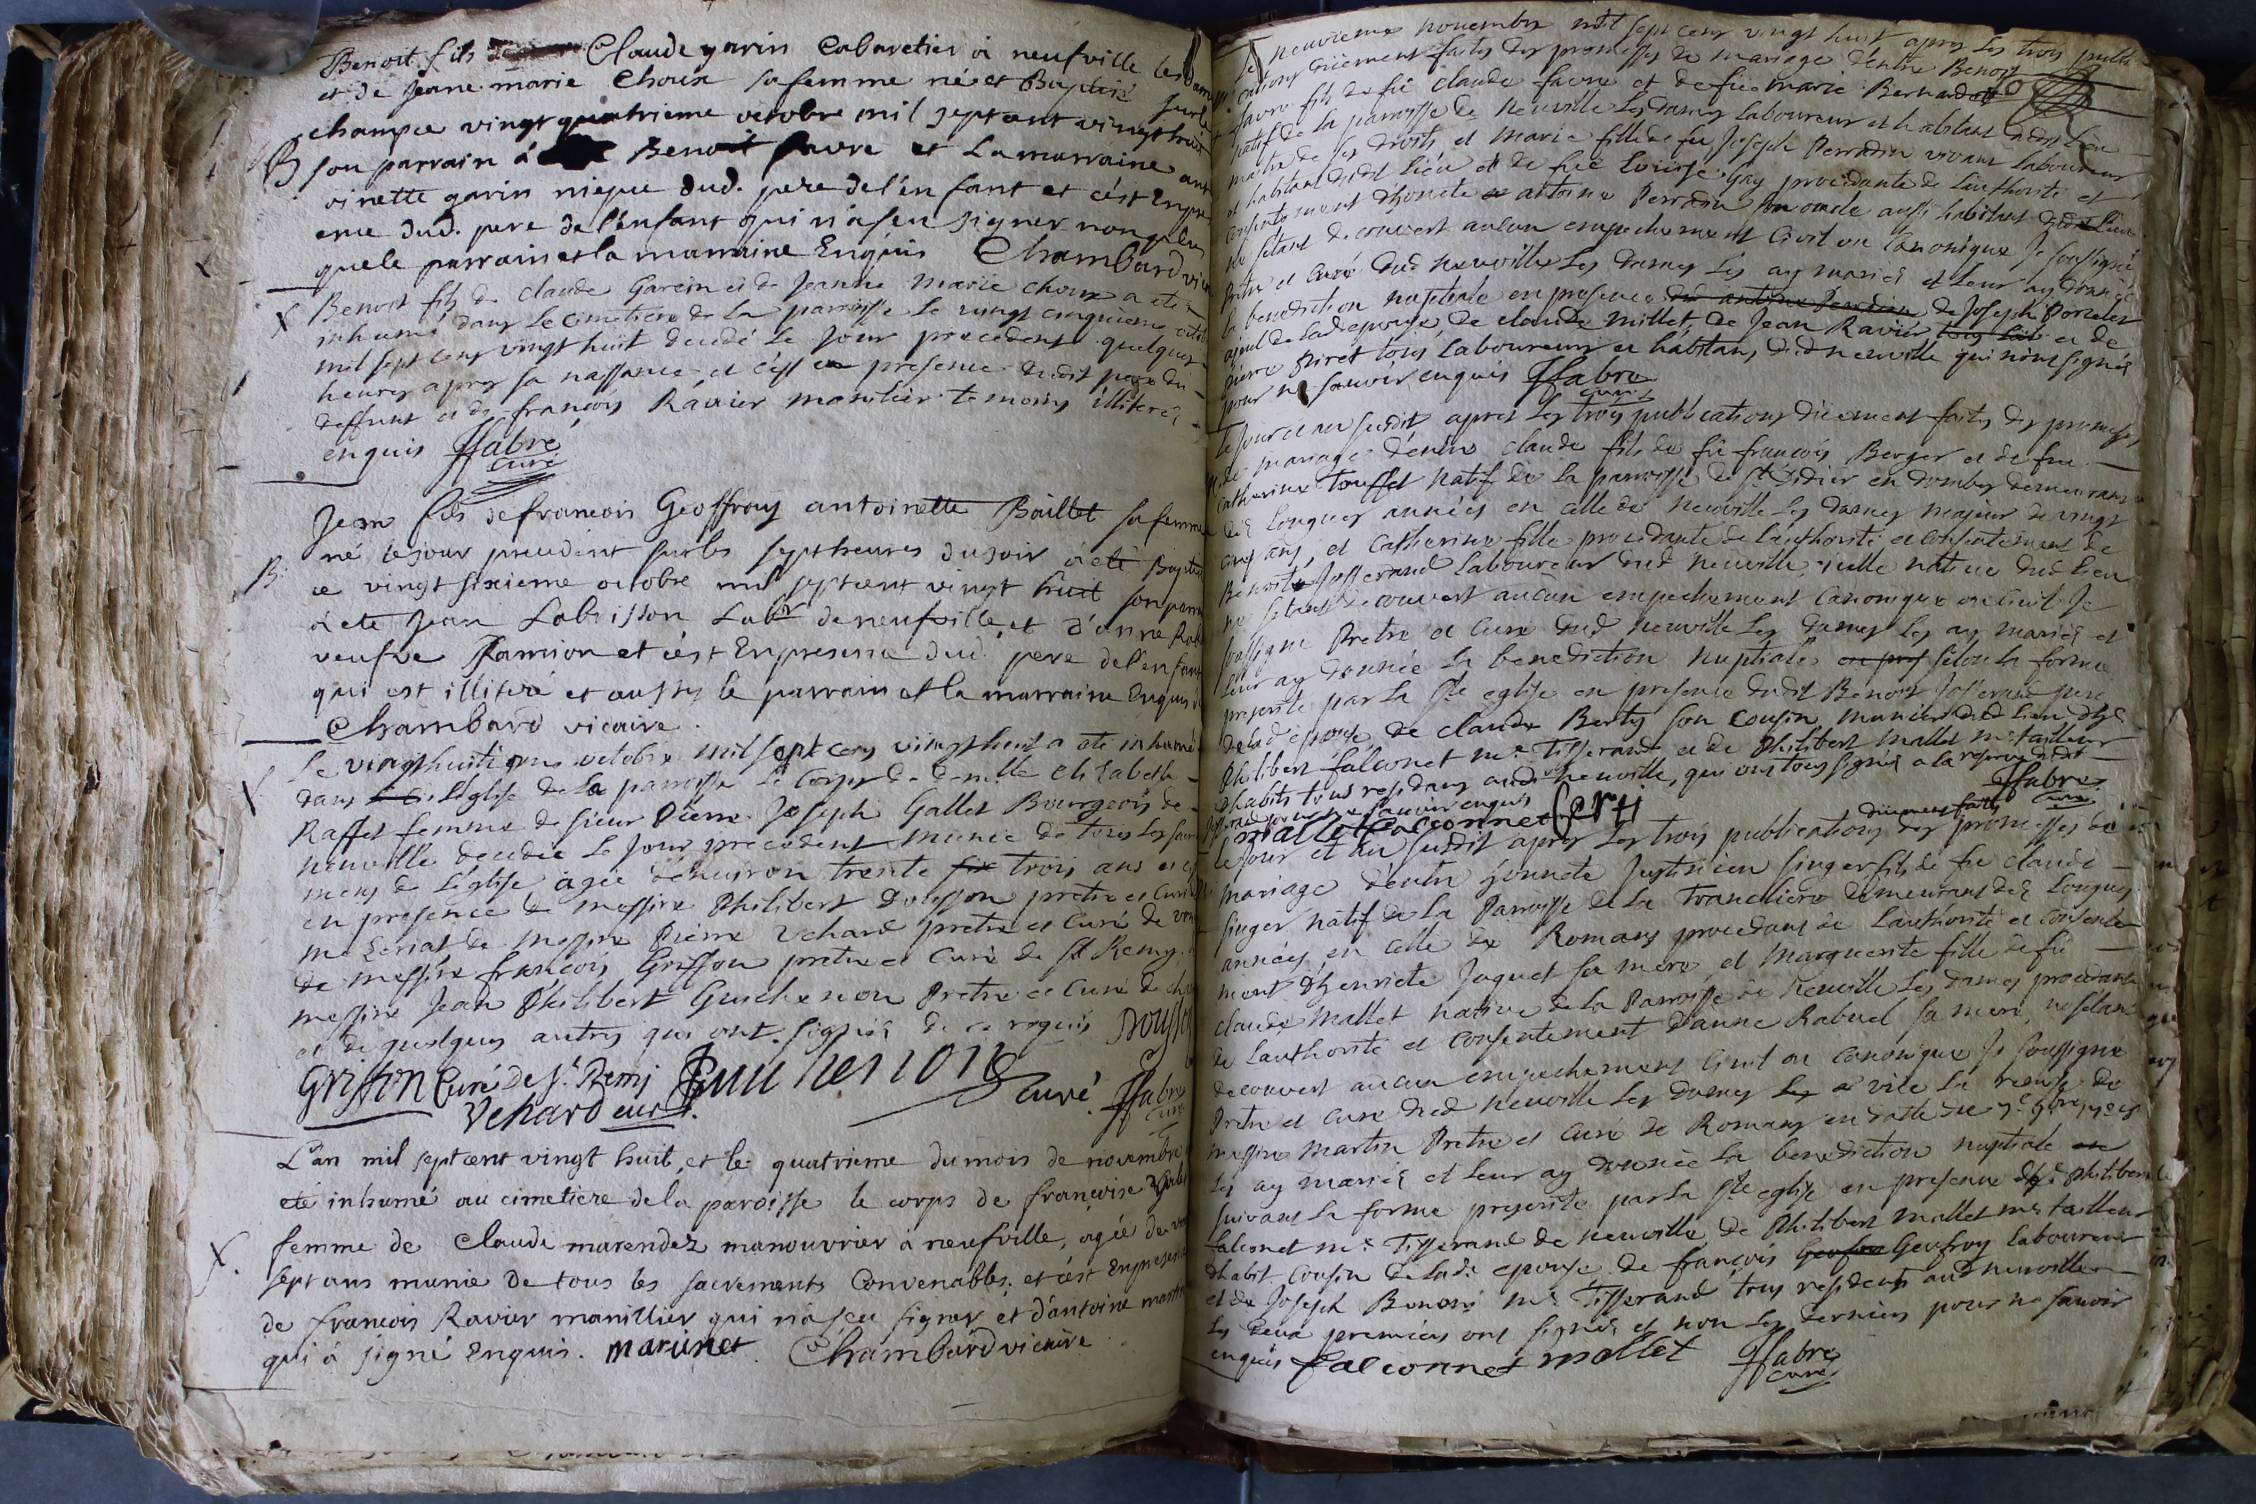 Benoit fils de Claude garin Cabaretier à neufville les Dam
et de Jeane marie Choux sa femme né et Baptisé sur le
champ ce vingt quatrieme octobre mil sept cent vingt huit
B
son parrain à Benoit favre et La marraine ant
oinette garin niepce dud. pere de l'enfant et c'est En pre
ence dud. pere de l'enfant qui n'a seu signer non plus
que le parrain et la marraine Enquis Chambard vic
X
Benoit fils de claude Garin et de Jeanne marie choux a ete
inhumé dans Le cimetiere de la parroisse le vingt cinquieme octob
mil sept cens vingt huit decedé Le Jour precedent quelques
heures apres sa naissance et c'est en presence dudit pere du
deffunt et de francois Ravier manilier temoins illiterés
enquis ffabre
curé
Jean fils de francois Geoffray antoinette Baillet sa femme
né le jour precedent sur les sept heures du soir à eté Baptisé
B.
ce vingt sixieme octobre mil sept cent vingt huit son parra
à eté Jean Labrisson Labr de neufville et d'anne Rab
veufve Ramion et c'est En presense dud. pere de l'enfant
qui est illiteré et aussy le parrain et la marraine Enquis
Chambard vicaire.
X
Le vingt huitieme octobre mil sept cens vingt huit a eté inhumé
dans l'église de la parroisse Le Corps de demlle Elizabeth
Raffet femme de sieur Pierre Joseph Gallet Bourgeois de
neuville decedée Le Jour precedent munie de tous Les sacre
mens de L'église agée d'environ trente six trois ans et c'est
en presence de messire Philibert Douisson pretre et Curé
de messire Pierre Vehard pretre et Curé de
de messire françois Griffon pretre et Curé de St Remy
messire Jean Philibert Guichenon Pretre et Curé de
et de quelques autres qui ont signés de ce requis Douisson
Griffon Curé de St. Remi Guichenon curé
Vehard curé. ffabre
curé
L'an mil sept cent vingt huit, et le quatrieme du mois de novembre
eté inhumé au cimetiere de la paroisse le corps de françoise
X.
femme de Claude marendez manouvrier à neufville, agée de
sept ans munie de tous les sacrements Convenables. et c'est En presen
de francois Ravier manillier qui n'a seu signer et d'antoine
qui à signé Enquis. Chambard vicaire
Le neuvieme novembre mil sept cens vingt huit apres Les trois publi
cations düement faites des promesses de mariage d'entre Benoit
favre fils de fû claude favre et de fûe marie Bernard
natif de la parroisse de Neuville Les dames Laboureur et habitant dudit Lieu
maitre de ses droits et marie fille de feu Joseph Perradin vivant Laboureur
et habitant dudit lieu et de fûe Louise Gay procedante de L'authorité et
consentement d'honete antoine Perradin son oncle aussi habitant dudit Lieu
ne s'etant decouvert aucun empechement Civil ou Canonique Je soussigné
Pretre et Curé dud Neuville Les dames Les ay mariés et Leur ay donnée
la benediction nuptiale en presence dud antoine Perradin de Joseph
ayeul de Lad epouse, de claude millet, de Jean Ravier et de
pierre Piret tous Laboureurs et habitans dud neuville qui n'ont signés
pour ne sçavoir enquis ffabre
curé
Le Jour et an susdit apres Les trois publications düement faites des promesses
de mariage d'entre claude fils de fû françois Berger et de fue
Catherine Touffet natif de La parroisse de St Didier en Dombes demeurant
dés Longues années en celle de Neuville Les dames majeur de vingt
cinq ans, et Catherine fille procedante de L'authorité et consentement de
Benoit Josserand Laboureur dud Neuville, icelle native dud Lieu
ne s'etant decouvert aucun empechement Canonique ou Civil Je
soussigné Pretre et Curé dud Neuville Les dames Les ay mariés et
Leur ay donnée La benediction Nuptiale en pres selon La forme
prescrite par La Ste eglise en presence dudit Benoit Josserand pere
de Lad epouse, de claude Berty son Cousin munier dud Lieu
Philibert falconet me. Tisserand et de Philibert Mallet me tailleur
d'habits tous residans aud neuville, qui ont tous signés a la reserve dudit
Josserand pour ne sçavoir enquis ffabre
curé
mallet falconnet berti
düement faites
Le Jour et an susdit apres Les trois publications des promesses de
mariage d'entre honnete Justinien singer fils de fû claude
singer natif de La Parroisse de La Trancliere demeurant dés Longues
années en celle de Romans procedant de L'authorité et consente
ment d'henriete Jaquet sa mere et Marguerite fille de fû
claude Mallet native de La Parroisse de Neuville Les dames procedante
de Lauthorité et Consentement d'anne Rabuel sa mere, ne s'etant
decouvert aucun empechement Civil ou Canonique Je soussigné
Pretre et Curé dud Neuville Les dames Les a vûe La remise de
messire Martin Pretre et Curé de Romans en datte du 7e 9bre 1728
Les ay mariés et Leur ay donnée La benediction nuptiale en
suivant La forme prescrite par La Ste eglise en presence de Philibert
falconet me. Tisserand de neuville de Philibert Mallet me tailleur
d'habit Cousin de Lade epouse de françois Geofroy Laboureur
et de Joseph Benoni me Tisserand tous residents aud neuville
Les deux premiers ont signés et non Les derniers pour ne sçavoir
enquis falconnet mallet ffabre
curé